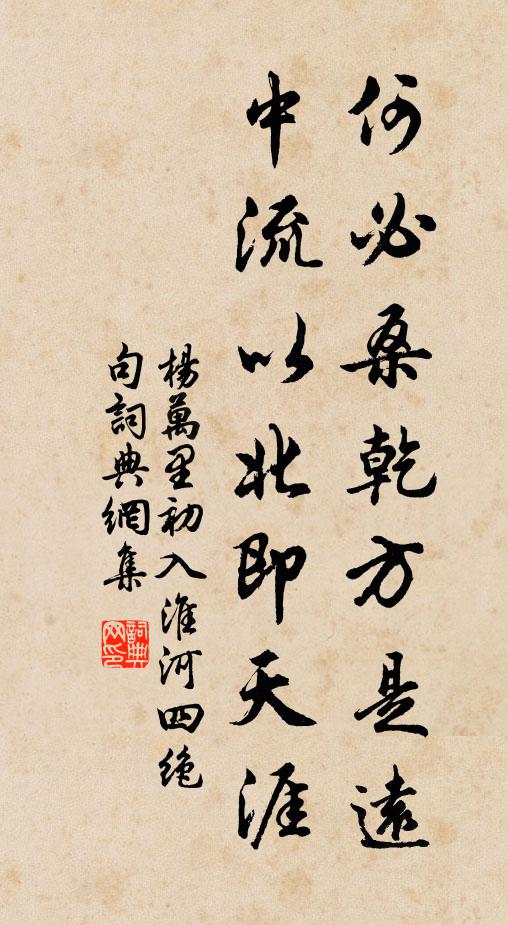 何必桑乾方是遠
中流以北即天涯
楊萬里初入淮河四絶
句詞典網集
詞典網印